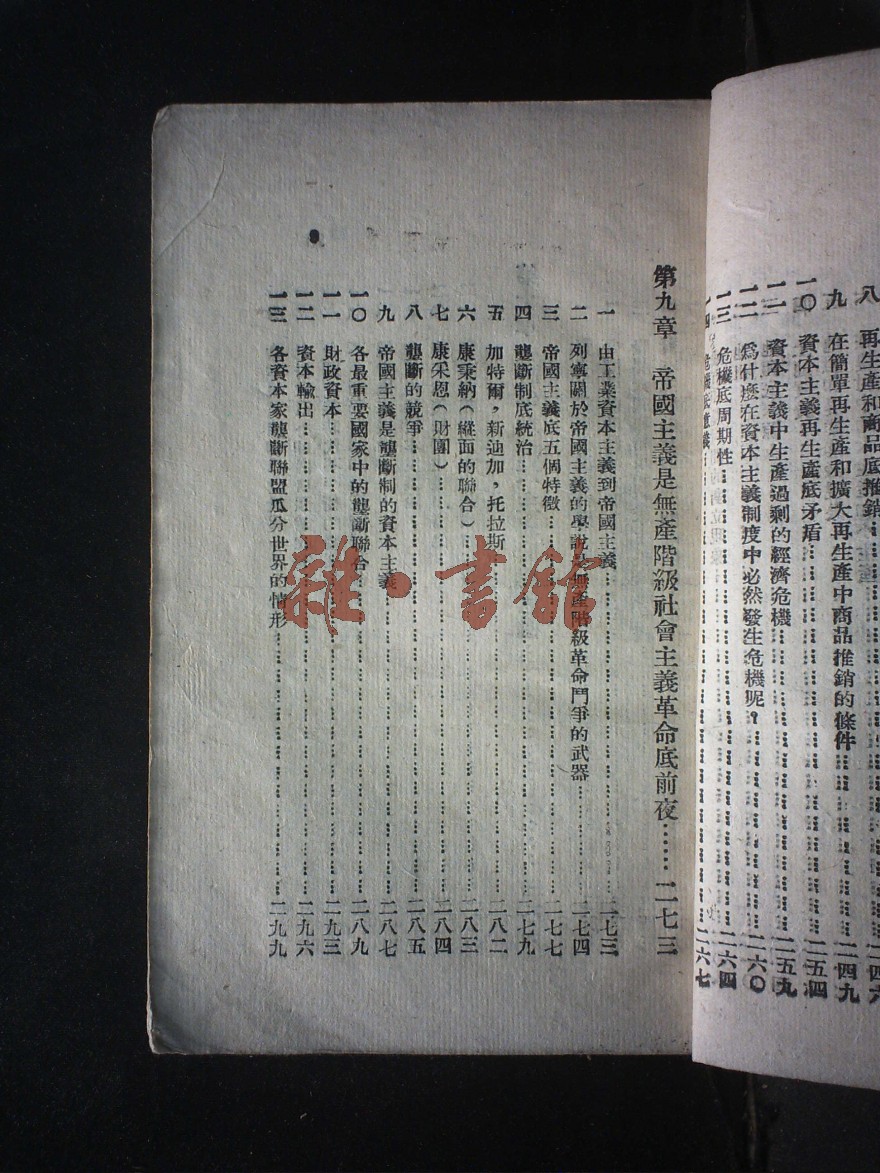 八 再生產和商品底推銷……二四六
九 在簡單再生產和擴大再生產中商品推銷的條件……二四九
一〇 資本主義再生產底矛盾……二五四
一一 資本主義中生產過剩的經濟危機……二五九
一二 爲什麼在資本主義制度中必然發生危機呢?……二六〇
一三 危機底周期性……二六四
一四 危機底意義……二六七
第九章 帝國主義是無產階級社會主義革命底前夜……二七三
一 由工業資本主義到帝國主義……二七三
二 列寧關於帝國主義的學說是無產階級革命鬥爭的武器……二七四
三 帝國主義底五個特徵……二七七
四 壟斷制底統治……二七九
五 加特爾,新迪加,托拉斯……二八二
六 康秉納(縱面的聯合)……二八三
七 康采恩(財團)……二八四
八 壟斷的競爭……二八五
九 帝國主義是壟斷制的資本主義……二八七
一〇 各最重要國家中的壟斷聯合……二八九
一一 財政資本……二九三
一二 資本輸出……二九六
一三 各資本家壟斷聯盟瓜分世界的情形……二九九
雜·書館